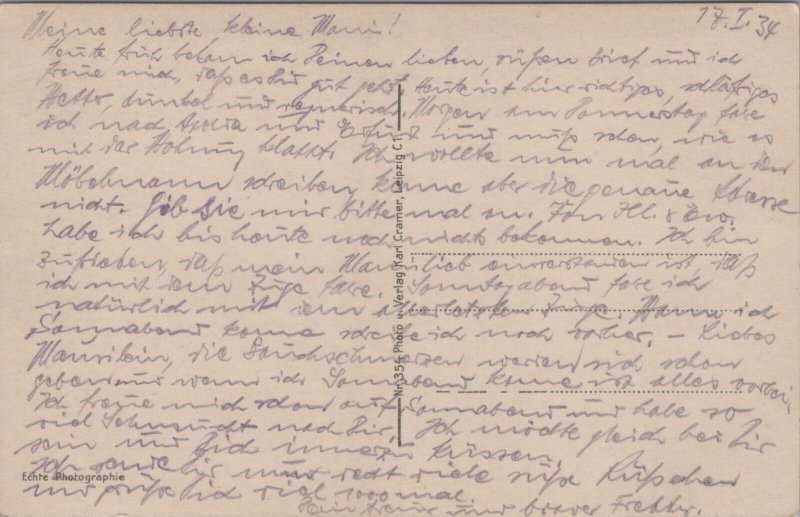 17.I.34
Meine liebste kleine Mausi!
Heute früh bekam ich Deinen lieben, süßen Brief und ich
freue mich, daß es Dir gut geht. Heute ist hier richtiges, schläfriges
Wetter, dunkel und regnerisch. Morgen am Donnerstag fahre
ich nach Apolda und Erfurt und muß sehen, wie es
mit der Wohnung klappt. Ich wollte nun mal an den
Möbelmann schreiben, kenne aber die genaue Adresse
nicht. Gib Sie mir bitte mal an. Von
habe ich bis heute noch nichts bekommen. Ich bin
zufrieden, daß mein Mausilieb einverstanden ist, daß
ich mit dem Zuge fahre. Sonnabend fahre ich
natürlich mit dem Zuge. Wann ich
Sonnabend komme schreibe ich noch vorher. – Liebes
Mausilein, die Bauchschmerzen werden sich schon
geben und wenn ich Sonnabend komme ist alles vorbei.
Ich freue mich schon auf Sonnabend und habe so
viel Sehnsucht nach Dir. Ich möchte gleich bei Dir
sein und Dich küssen.
Ich sende Dir recht viele süße Küßchen
und grüße Dich viel 1000 mal.
Dein treuer und braver
Echte Photographie
Nr. 354 Photo u. Verlag Karl Cramer, Leipzig C1